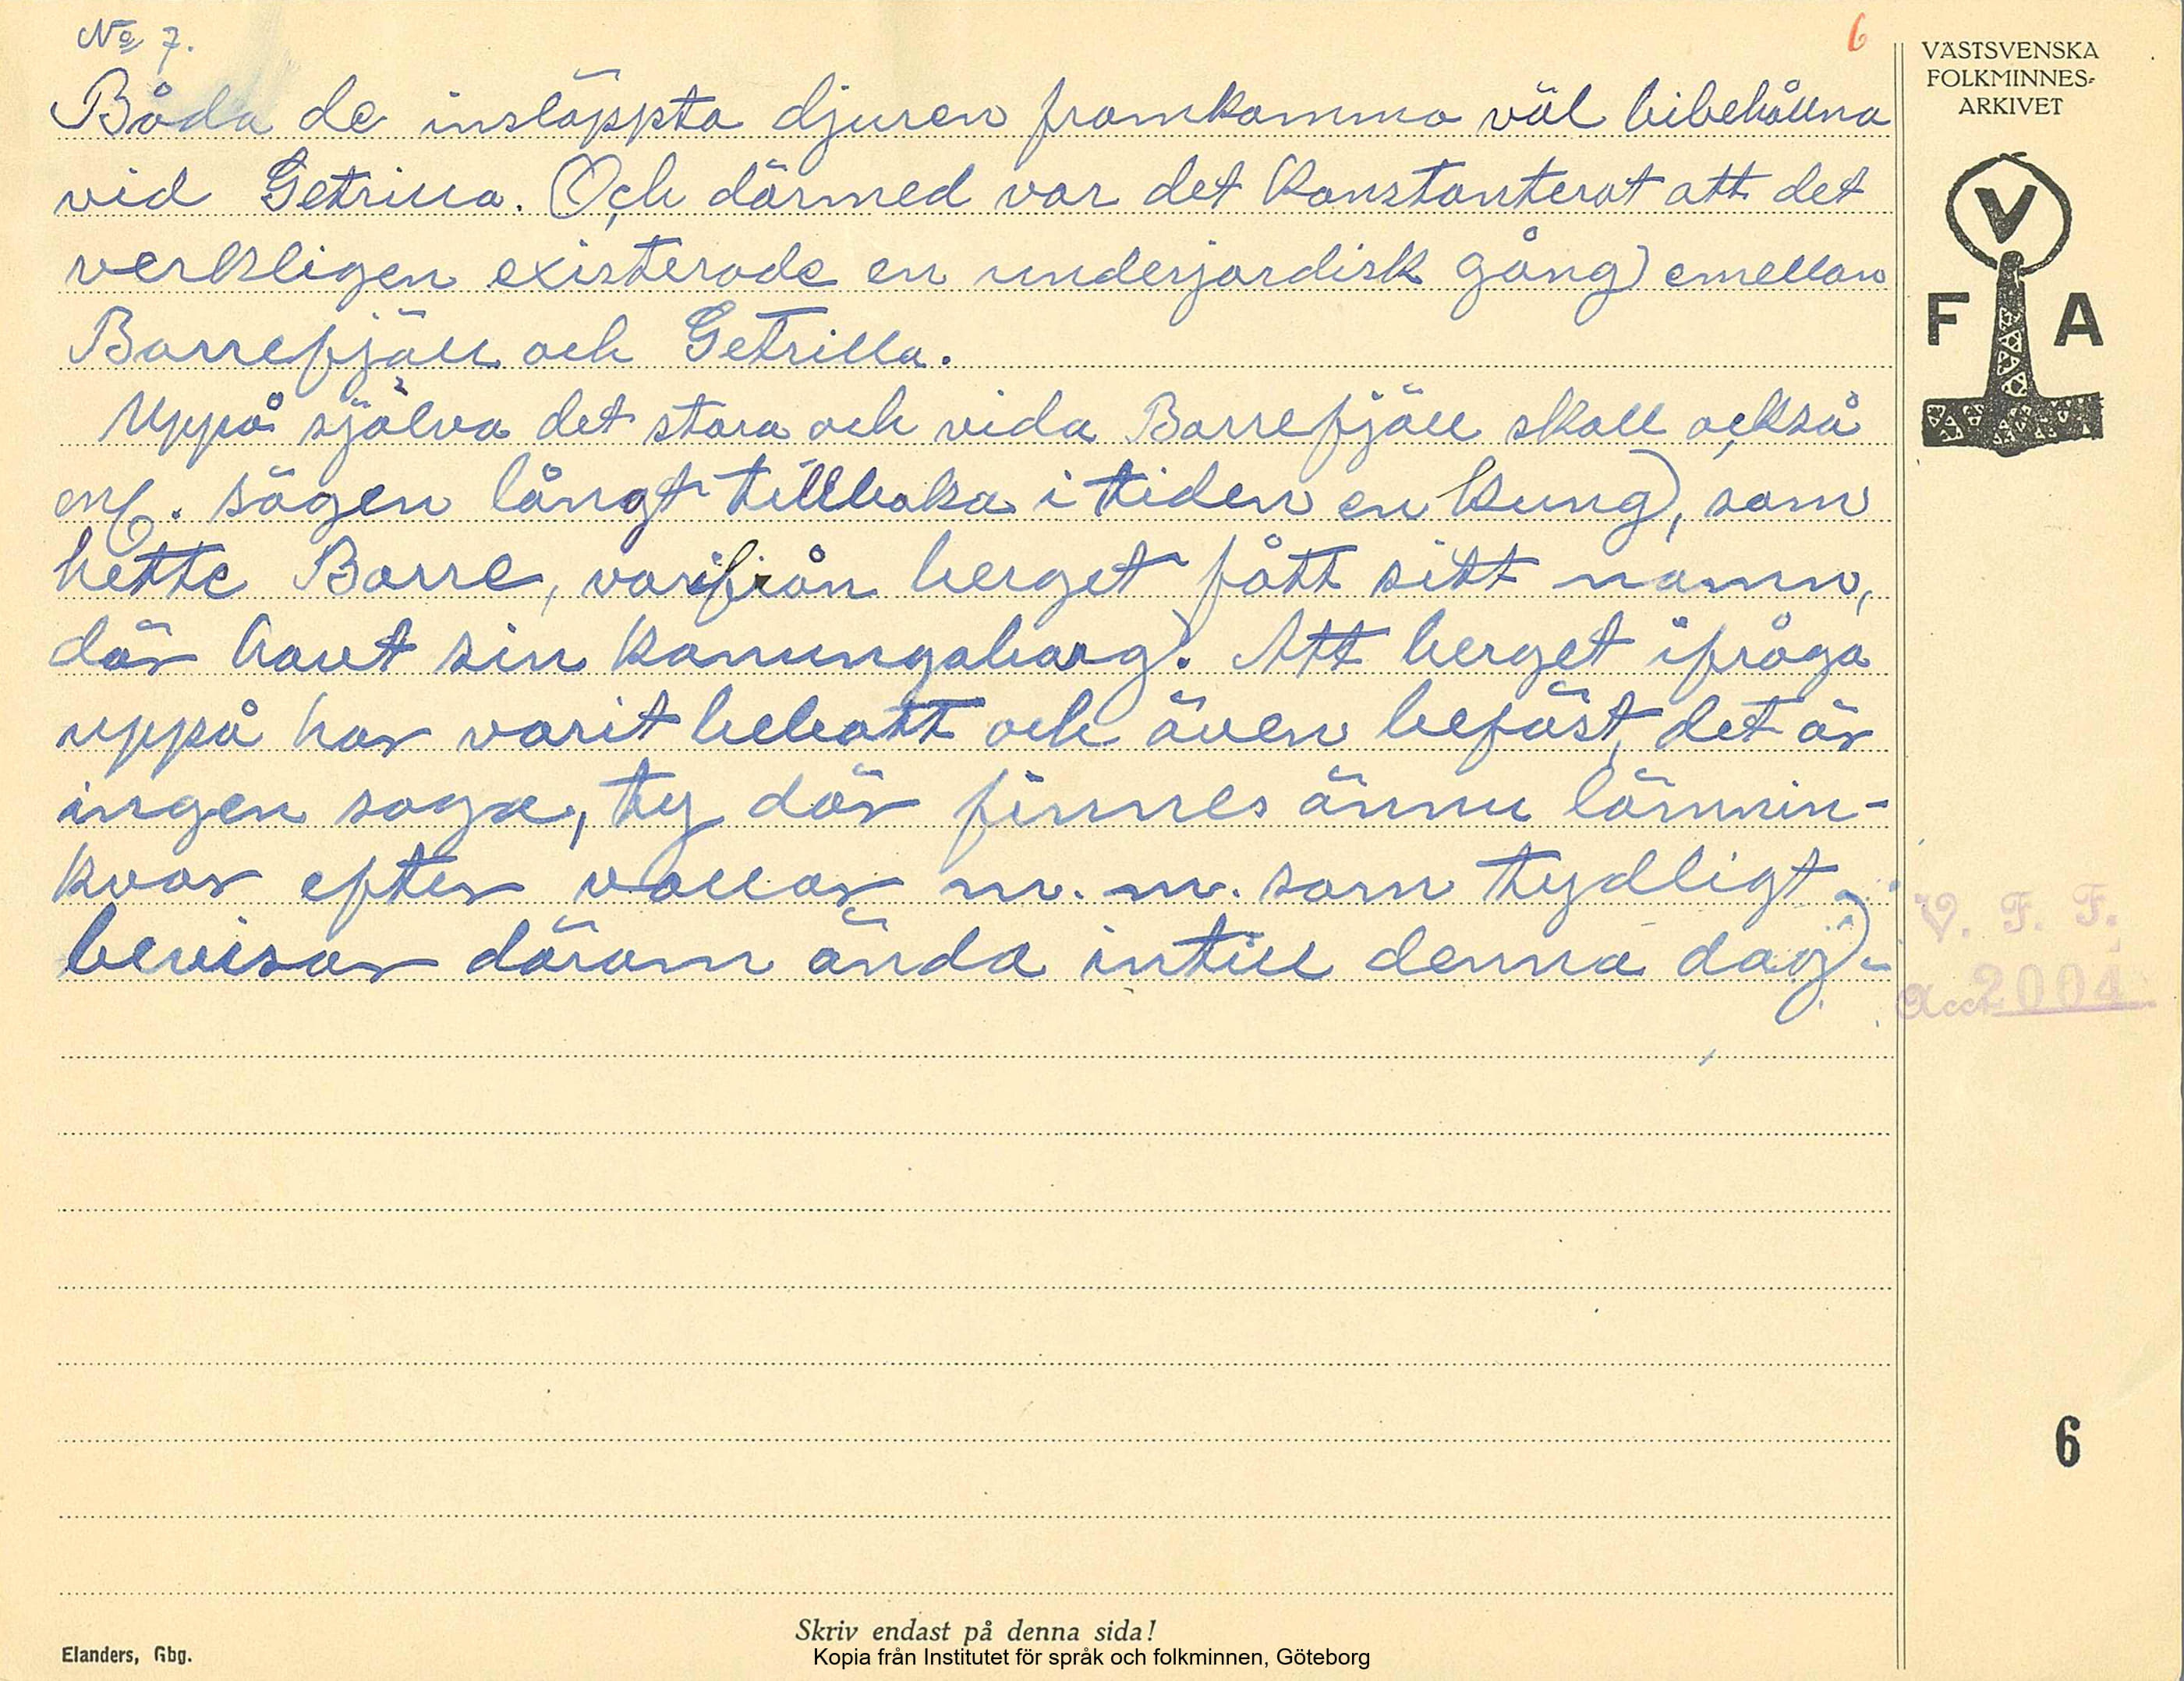 No 7.
6
Båda de insläppta djuren framkommo väl bibehållna
vid Getrilla. Och därmed var det konstanterat att det
verkligen existerade en underjordisk gång emellan
Borrefjäll och Getrilla.
Uppå själva det stora och vida Borrefjäll skall också
enl. sägen långt tillbaka i tiden en kung, som
hette Borre, varifrån berget fått sitt namn,
där havt sin konungaborg. Att berget ifråga
uppå har varit bebott och även befäst, det är
ingen saga, ty där finnes ännu lämnin-
kvar efter vallar m. m. som tydligt
bevisar därom ända intill denna dag.
VÄSTSVENSKA
FOLKMINNES-
ARKIVET
V
F A
V. F. F.
Acc. 2004
6
Skriv endast på denna sida!
Elanders, Gbg.
Kopia från Institutet för språk och folkminnen, Göteborg